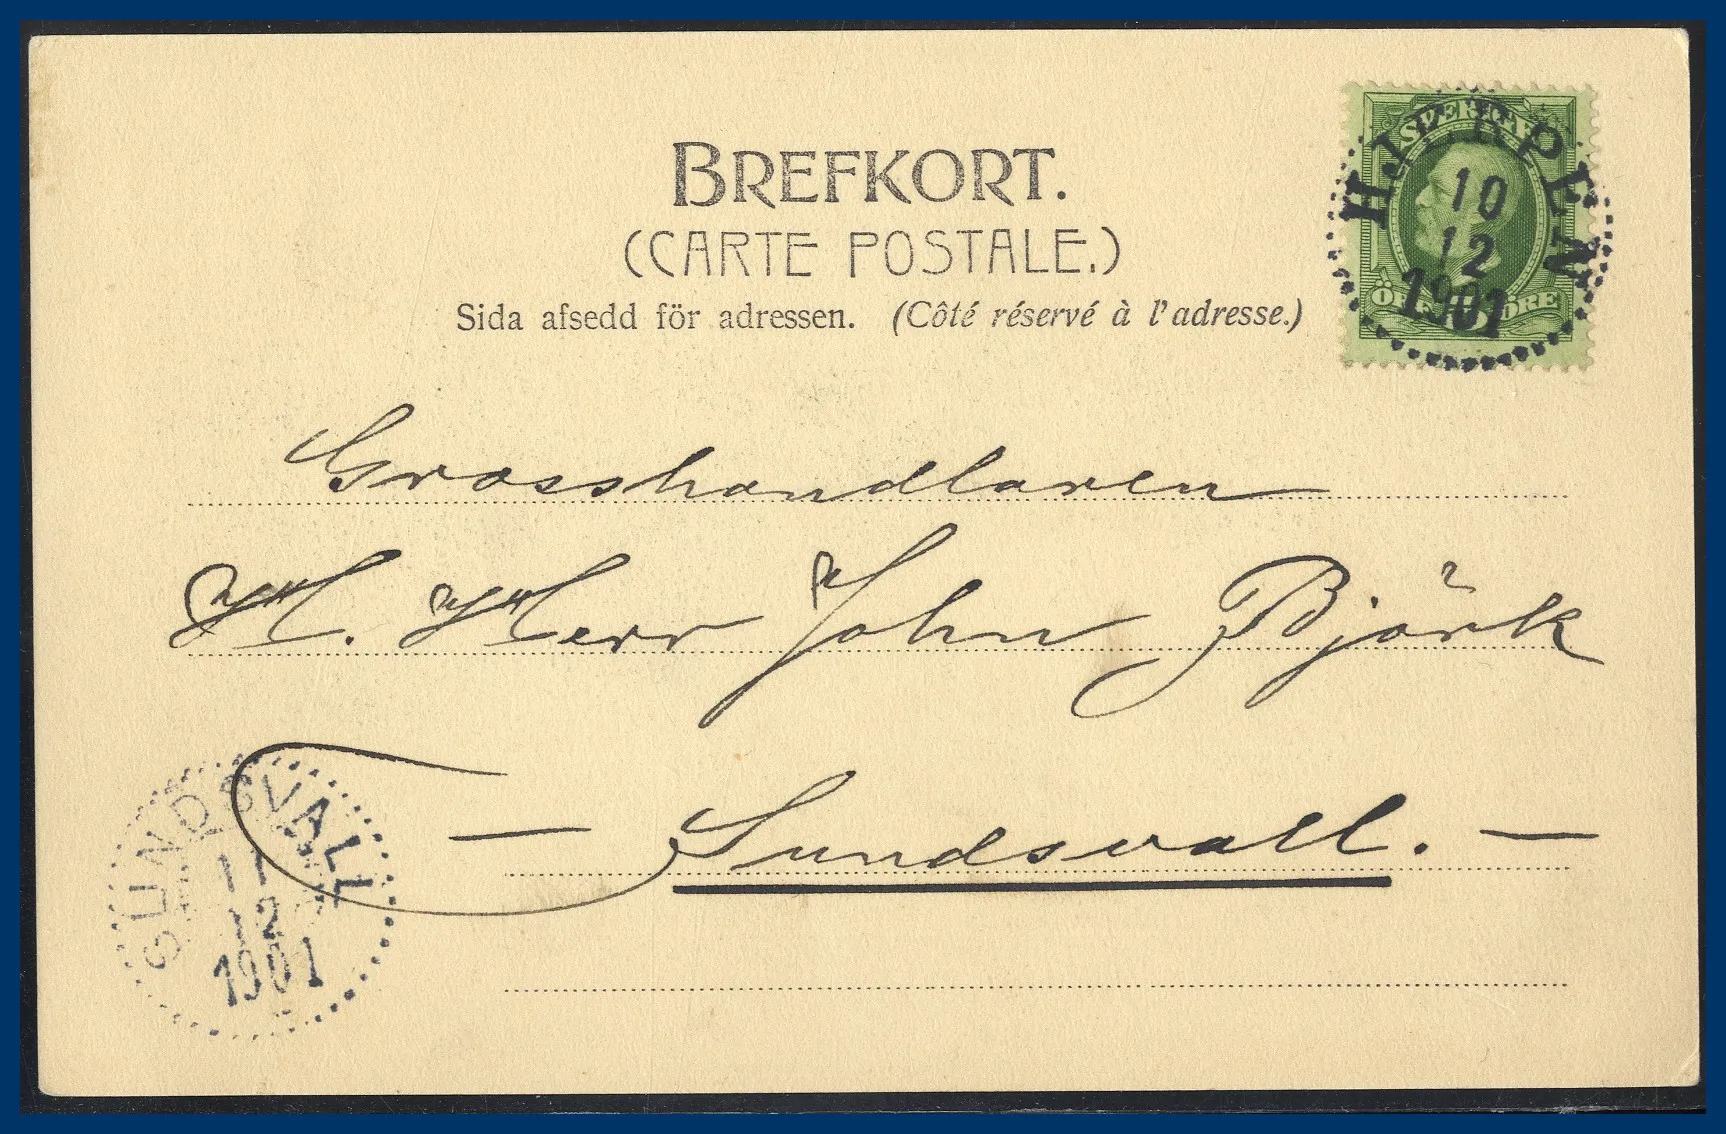 BREFKORT.
(CARTE POSTALE.)
Sida afsedd för adressen. (Côté réservé à l'adresse.)
SVERIGE
HJERPEN
10
12
1901
ÖRE
ÖRE
Grosshandlaren
H. Herr John Björk
— Sundsvall. —
SUNDSVALL
11
12
1901